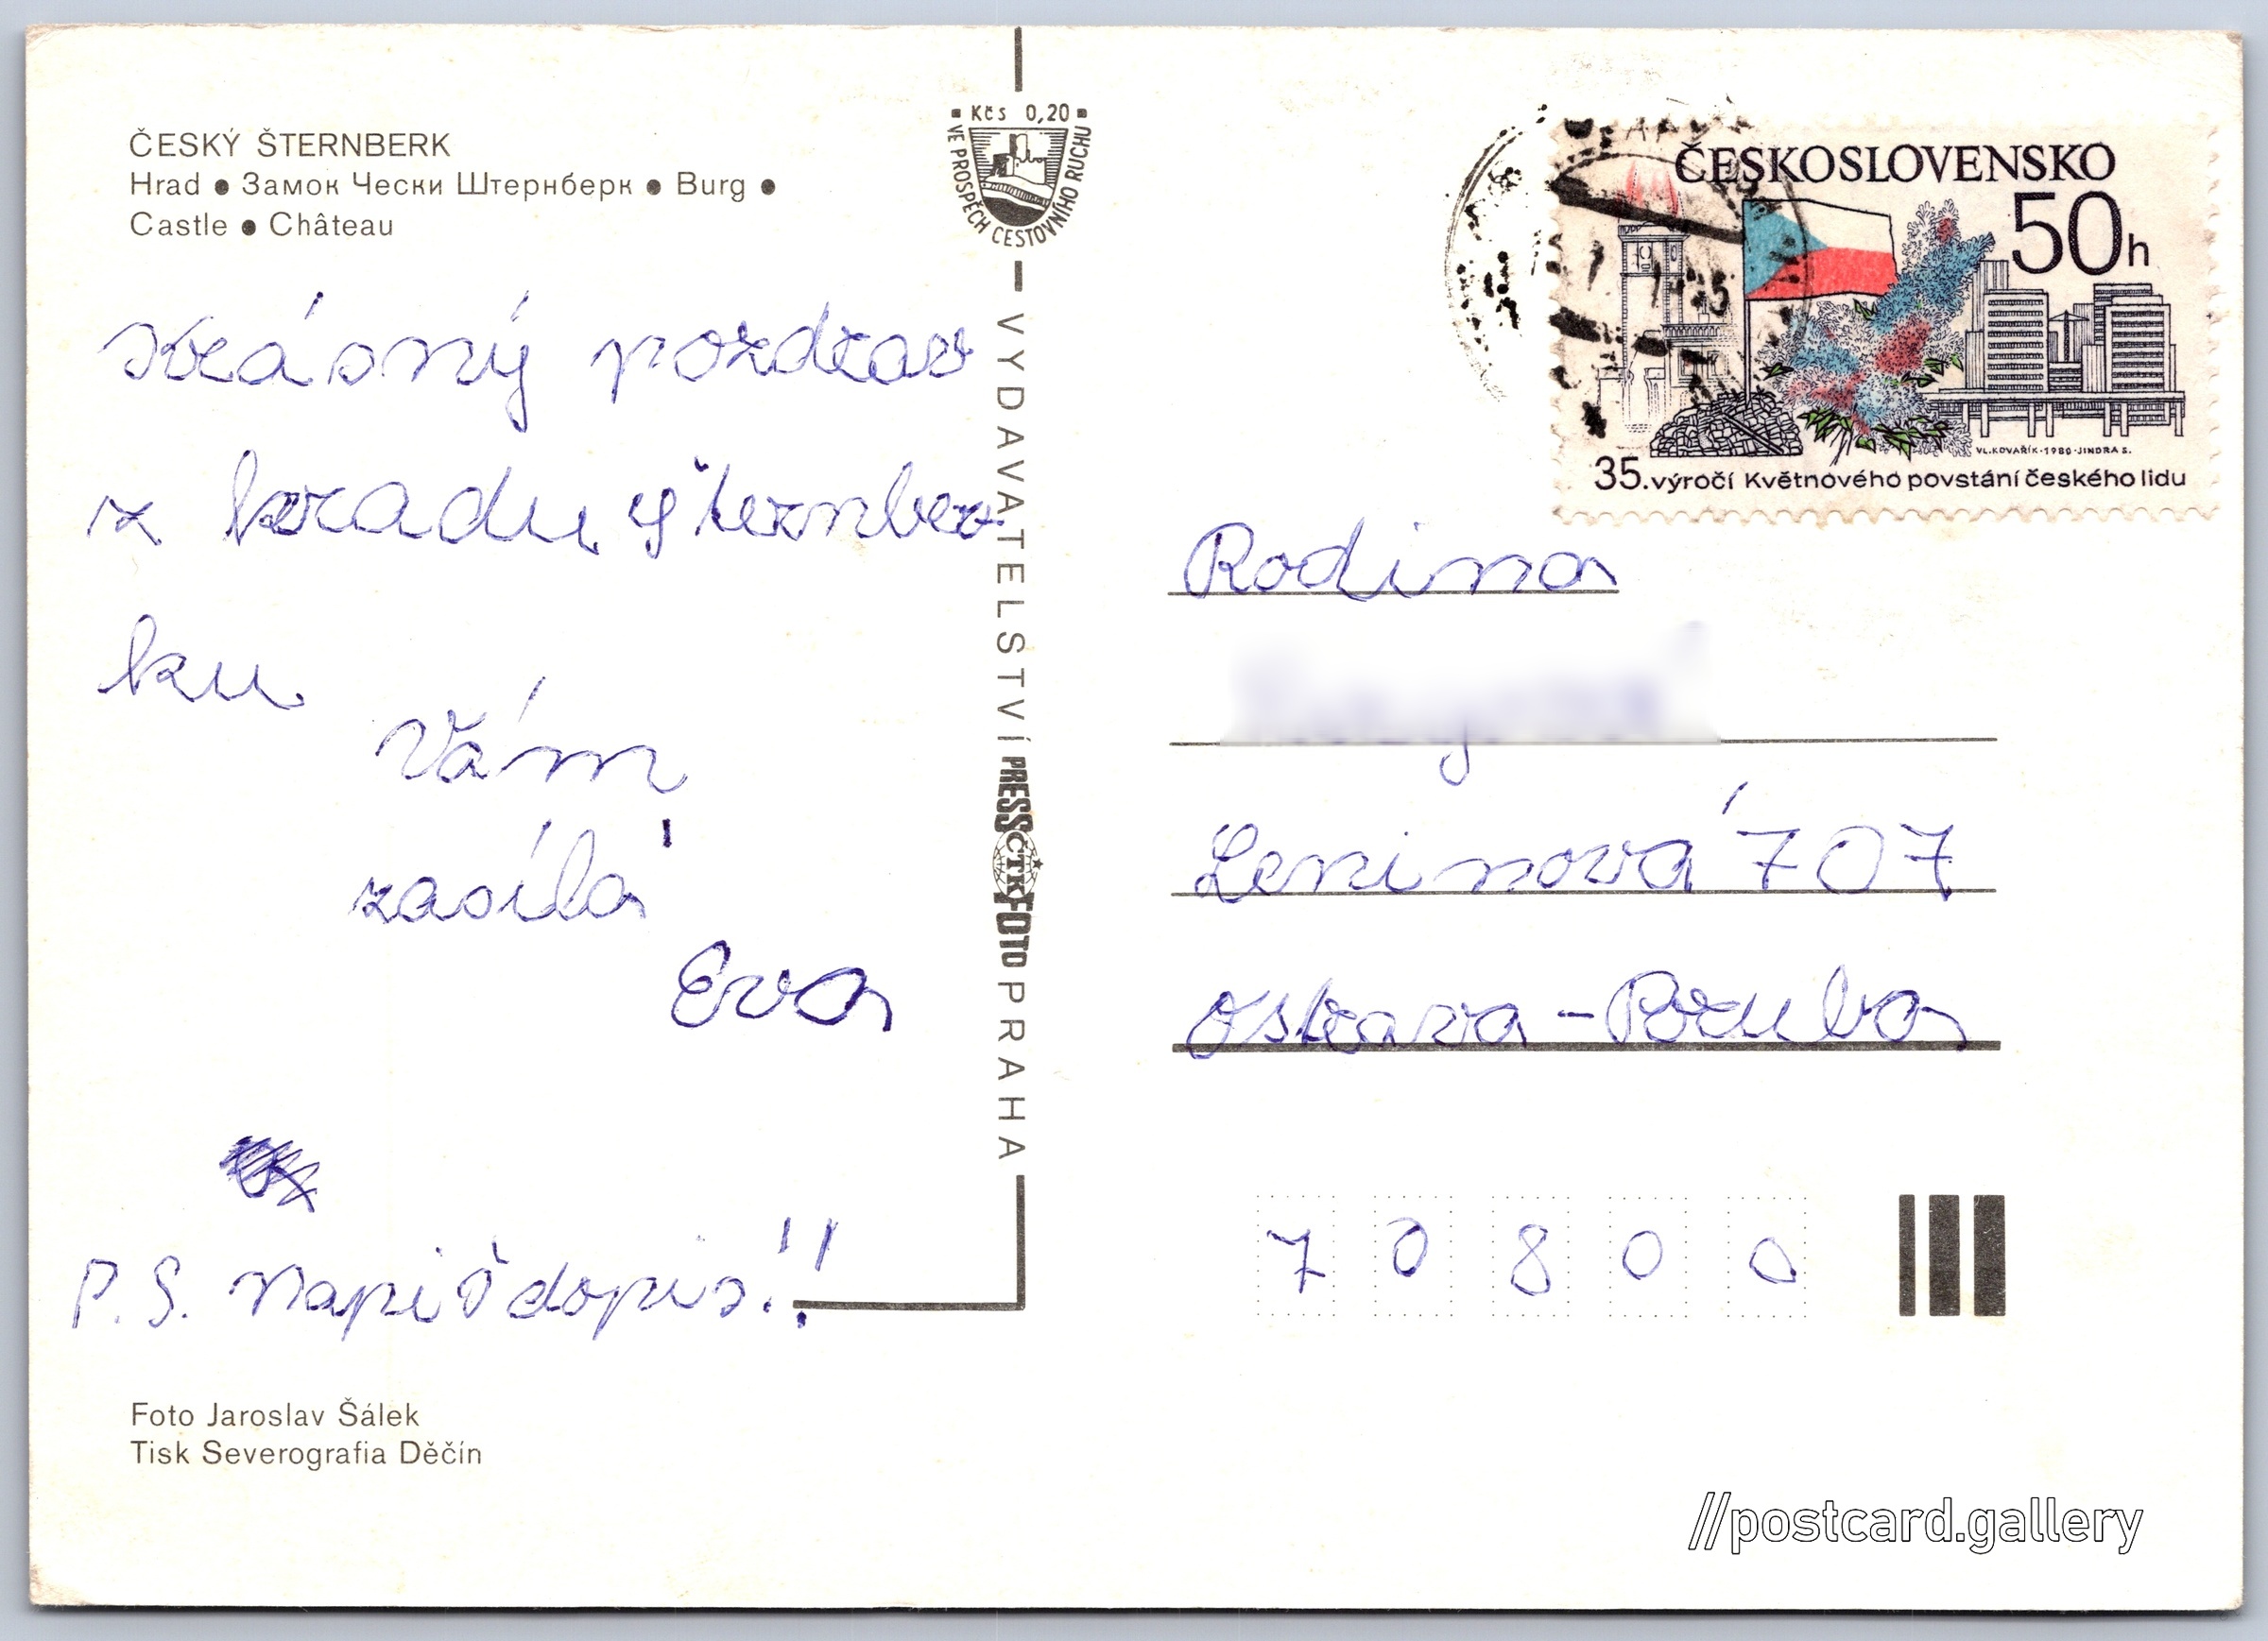 ČESKÝ ŠTERNBERK
Hrad ● Замок Чески Штернберк ● Burg ●
Castle ● Château
Krásný pozdrav
z hradu Šternber
ku
Vám
zasílá
Eva
P.S. Napiš dopis!!
Foto Jaroslav Šálek
Tisk Severografia Děčín
Kčs 0,20
VE PROSPĚCH CESTOVNÍHO RUCHU
VYDAVATELSTVÍ PRESSFOTO PRAHA
ČTK
ČESKOSLOVENSKO
50h
VL.KOVAŘÍK·1980·JINDRA S.
35. výročí Květnového povstání českého lidu
Rodina
Leninová 707
Ostrava - Poruba
70800
//postcard.gallery